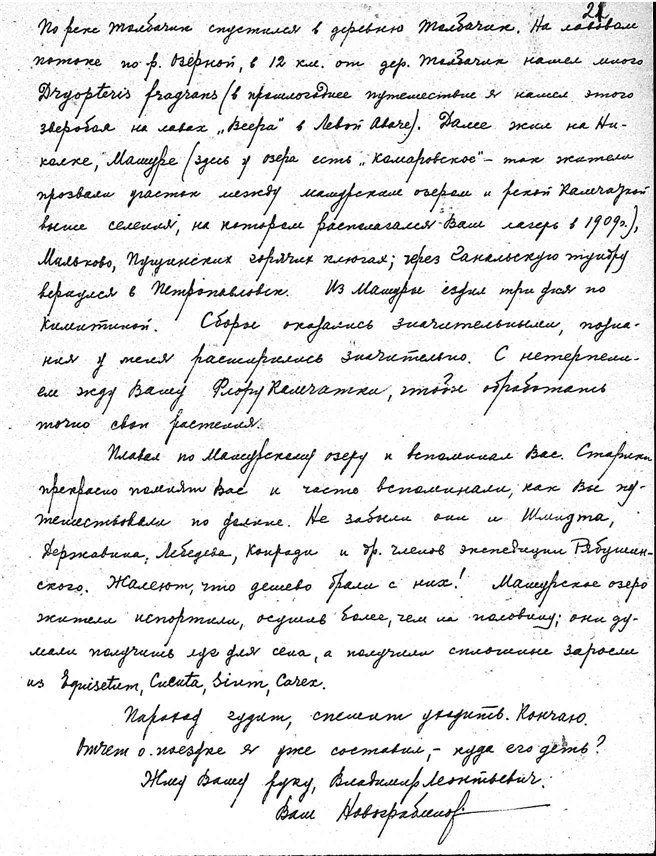 21
По реке Толбачик спустился в деревню Толбачик. На лавовом
потоке по р. Озёрной, в 12 км. от дер. Толбачик нашел много
Dryopteris fragrans (в прошлогоднее путешествие я нашел этого
зверобоя на лавах „Веера" в Левой Аваче). Далее жил на Ни-
колке, Машуре (здесь у озера есть „Комаровское" – так жители
прозвали участок между машурским озером и рекой Камчаткой
выше селения, на котором располагался Ваш лагерь в 1909 г.),
Мильково, Пущинских горячих ключах; через Ганальскую тундру
вернулся в Петропавловск. Из Машуры ездил три дня по
Кимитиной. Сборы оказались значительными, позна-
ния у меня расширились значительно. С нетерпени-
ем жду Вашу Флору Камчатки, чтобы обработать
точно свои растения.
Плавал по Машурскому озеру и вспоминал Вас. Старики
прекрасно помнят Вас и часто вспоминали, как Вы пу-
тешествовали по долине. Не забыли они и Шмидта,
Державина, Лебедева, Конради и др. членов экспедиции Рябушин-
ского. Жалеют, что дешево брали с них! Машурское озеро
жители испортили, осушив более, чем на половину; они ду-
мали получить луг для сена, а получили сплошные заросли
из Equisetum, Cicuta, Sium, Carex.
Пароход гудит, спешит уходить. Кончаю.
Отчет о поездке я уже составил, – куда его деть?
Жму Вашу руку, Владимир Леонтьевич.
Ваш Новограбленов